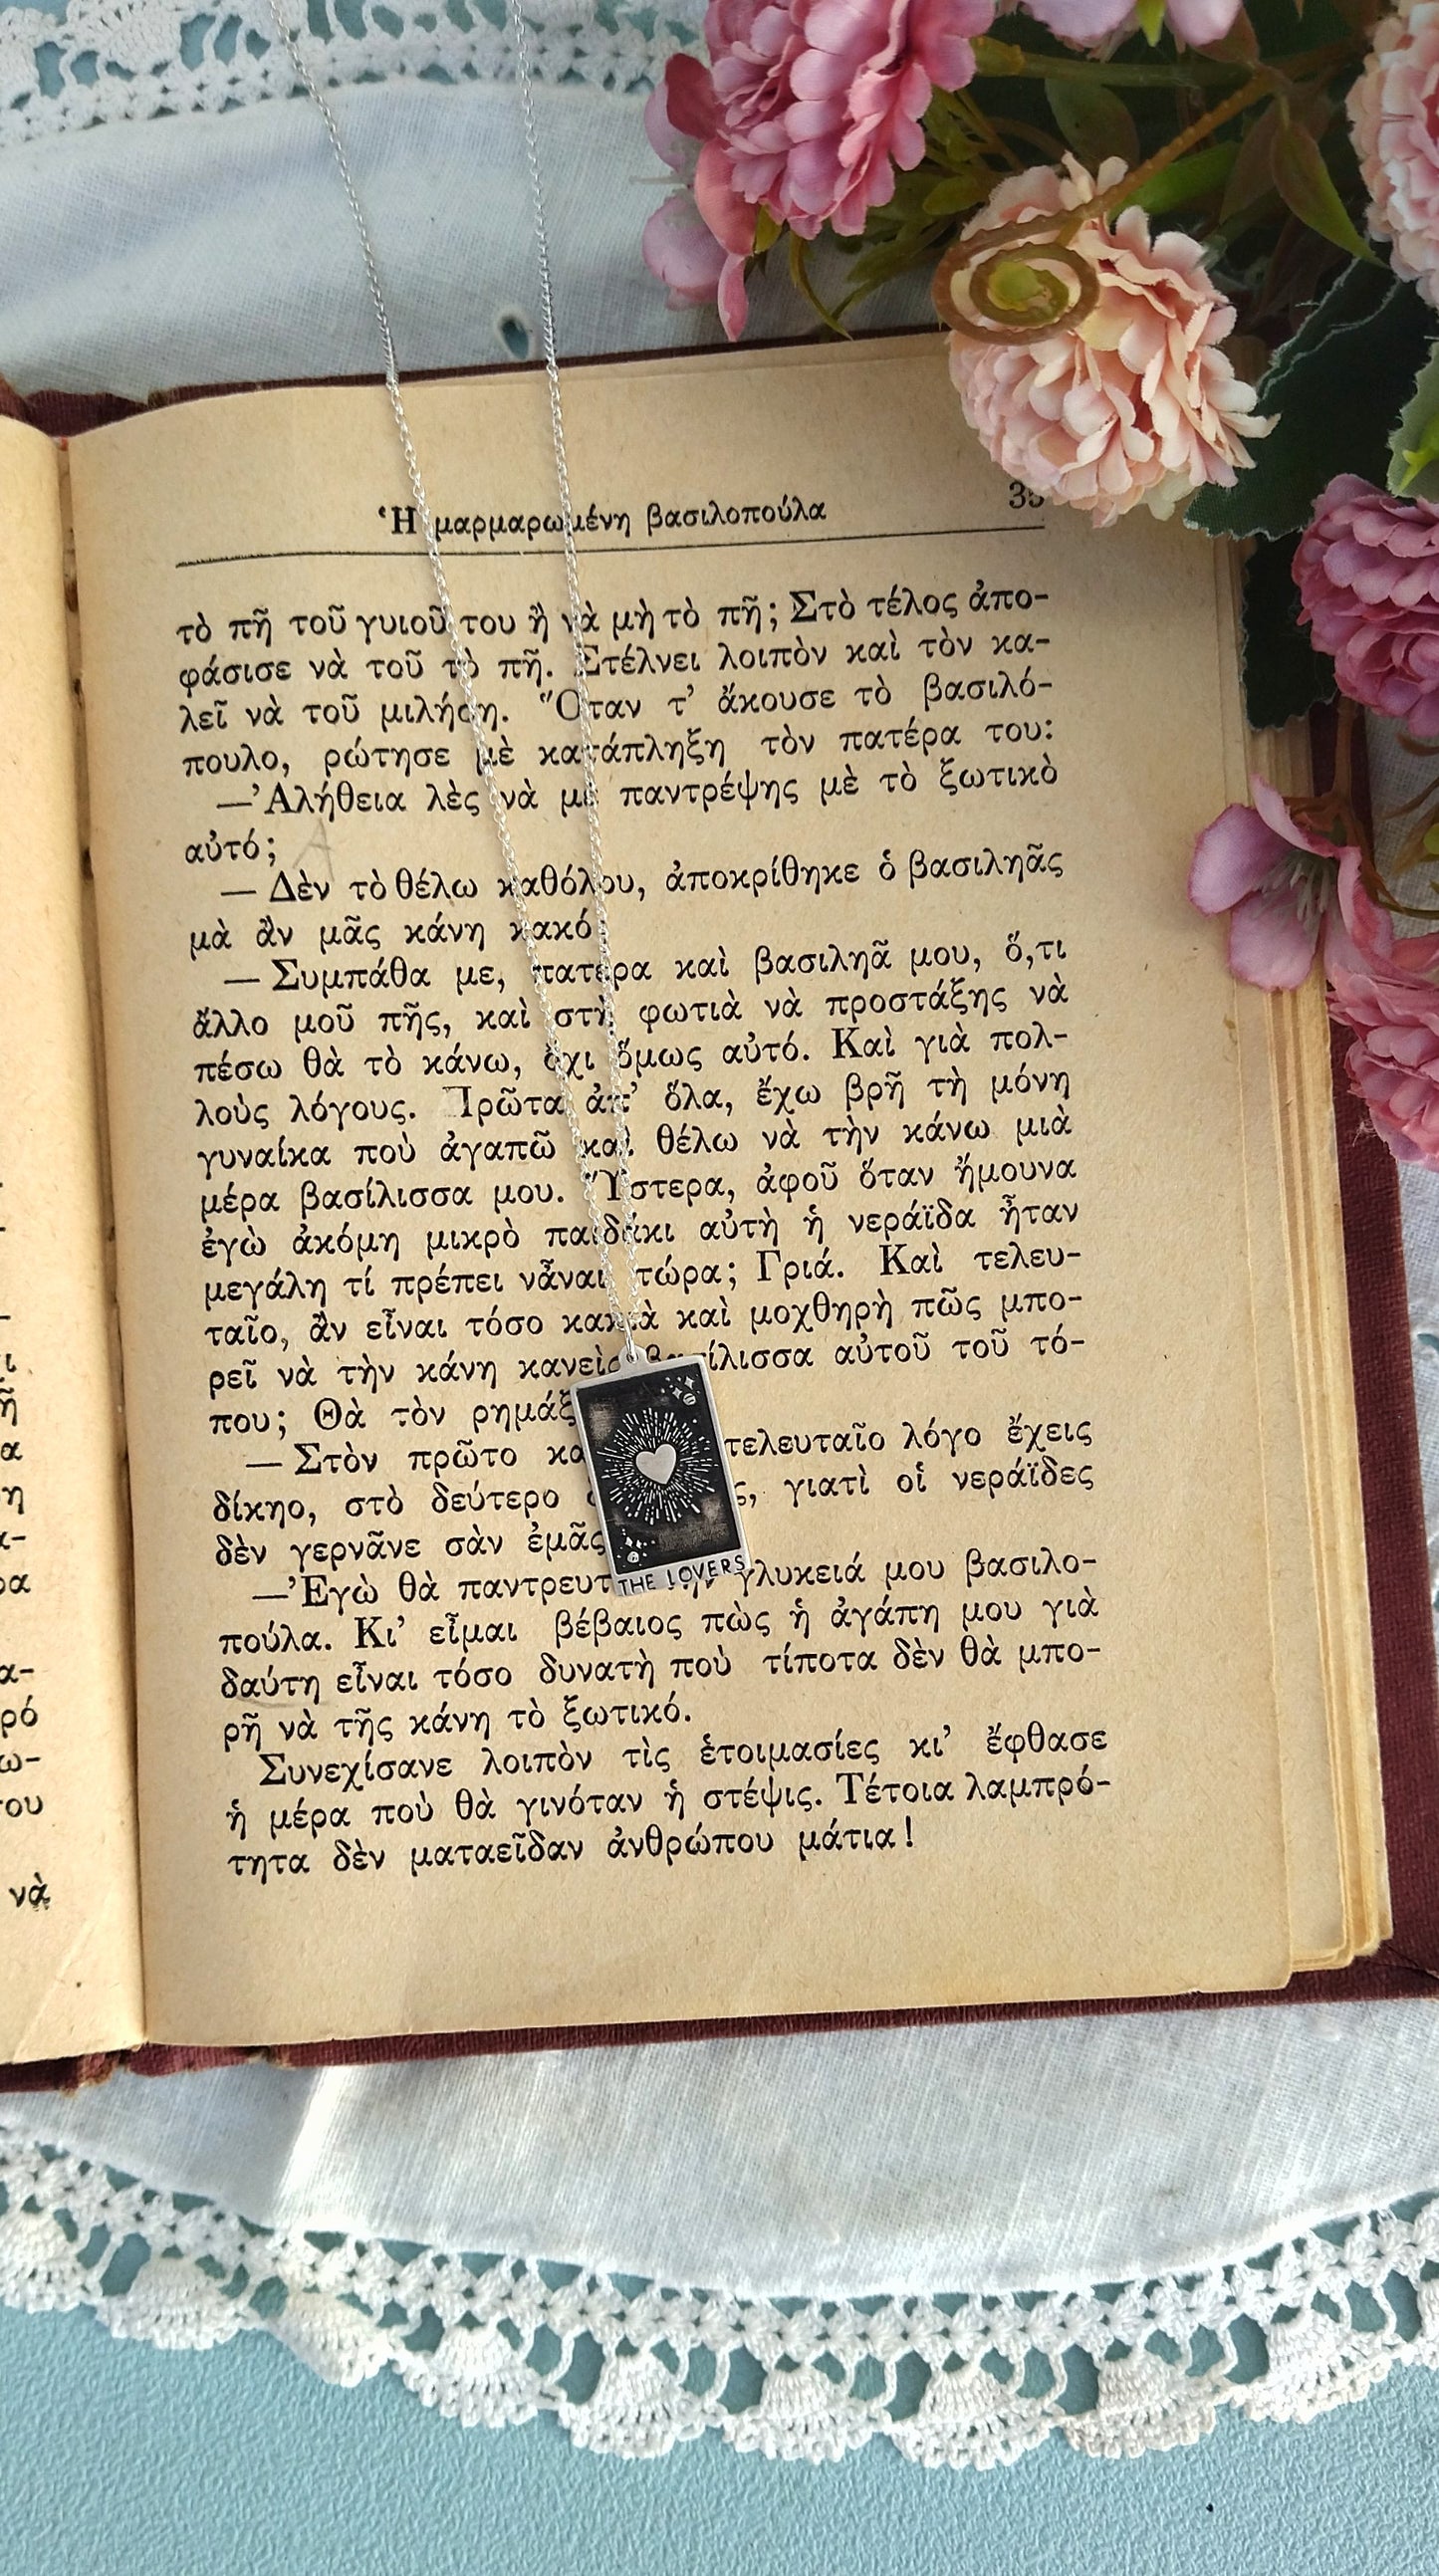 Ἡ μαρμαρωμένη βασιλοπούλα
τὸ πῇ τοῦ γυιοῦ του ἢ νὰ μὴ τὸ πῇ; Στὸ τέλος ἀπο-
φάσισε νὰ τοῦ τὸ πῇ. Στέλνει λοιπὸν καὶ τὸν κα-
λεῖ νὰ τοῦ μιλήσῃ. Ὅταν τ’ ἄκουσε τὸ βασιλό-
πουλο, ρώτησε μὲ κατάπληξη τὸν πατέρα του:
—Ἀλήθεια λὲς νὰ μὲ παντρέψῃς μὲ τὸ ξωτικὸ
αὐτό;
— Δὲν τὸ θέλω καθόλου, ἀποκρίθηκε ὁ βασιληᾶς
μὰ ἂν μᾶς κάνη κακό;
— Συμπάθα με, πατέρα καὶ βασιληᾶ μου, ὅ,τι
ἄλλο μοῦ πῇς, καὶ στὴ φωτιὰ νὰ προστάξης νὰ
πέσω θὰ τὸ κάνω, ὄχι ὅμως αὐτό. Καὶ γιὰ πολ-
λοὺς λόγους. Πρῶτα ἀπ’ ὅλα, ἔχω βρῆ τὴ μόνη
γυναίκα ποὺ ἀγαπῶ καὶ θέλω νὰ τὴν κάνω μιὰ
μέρα βασίλισσα μου. Ὕστερα, ἀφοῦ ὅταν ἤμουνα
ἐγὼ ἀκόμη μικρὸ παιδάκι αὐτὴ ἡ νεράϊδα ἦταν
μεγάλη τί πρέπει νἆναι τώρα; Γριά. Καὶ τελευ-
ταῖο, ἂν εἶναι τόσο κακιὰ καὶ μοχθηρὴ πῶς μπο-
ρεῖ νὰ τὴν κάνη κανεὶς βασίλισσα αὐτοῦ τοῦ τό-
που; Θὰ τὸν
— Στὸν πρῶτο τελευταῖο λόγο ἔχεις
δίκηο, στὸ δεύτερο γιατὶ οἱ νεράϊδες
δὲν γερνᾶνε σὰν ἐμᾶς
—Ἐγὼ θὰ γλυκειά μου βασιλο-
πούλα. Κι’ εἶμαι βέβαιος πὼς ἡ ἀγάπη μου γιὰ
δαύτη εἶναι τόσο δυνατὴ ποὺ τίποτα δὲν θὰ μπο-
ρῆ νὰ τῆς κάνη τὸ ξωτικό.
Συνεχίσανε λοιπὸν τὶς ἑτοιμασίες κι’ ἔφθασε
ἡ μέρα ποὺ θὰ γινόταν ἡ στέψις. Τέτοια λαμπρό-
τητα δὲν ματαεῖδαν ἀνθρώπου μάτια!
THE LOVERS
νὰ